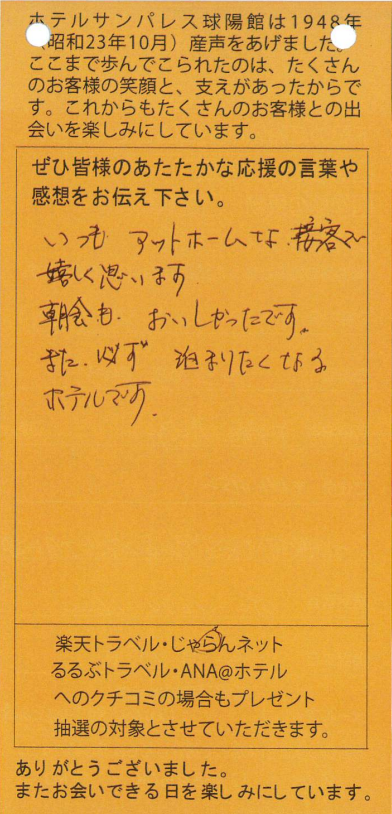 ホテルサンパレス球陽館は1948年
（昭和23年10月）産声をあげました。
ここまで歩んでこられたのは、たくさん
のお客様の笑顔と、支えがあったからで
す。これからもたくさんのお客様との出
会いを楽しみにしています。
ぜひ皆様のあたたかな応援の言葉や
感想をお伝え下さい。
いつも アットホームな、接客で
嬉しく思います
朝会も、おいしかったです。
また、必ず 泊まりたくなる
ホテルです。
楽天トラベル・じゃらんネット
るるぶトラベル・ANA@ホテル
へのクチコミの場合もプレゼント
抽選の対象とさせていただきます。
ありがとうございました。
またお会いできる日を楽しみにしています。